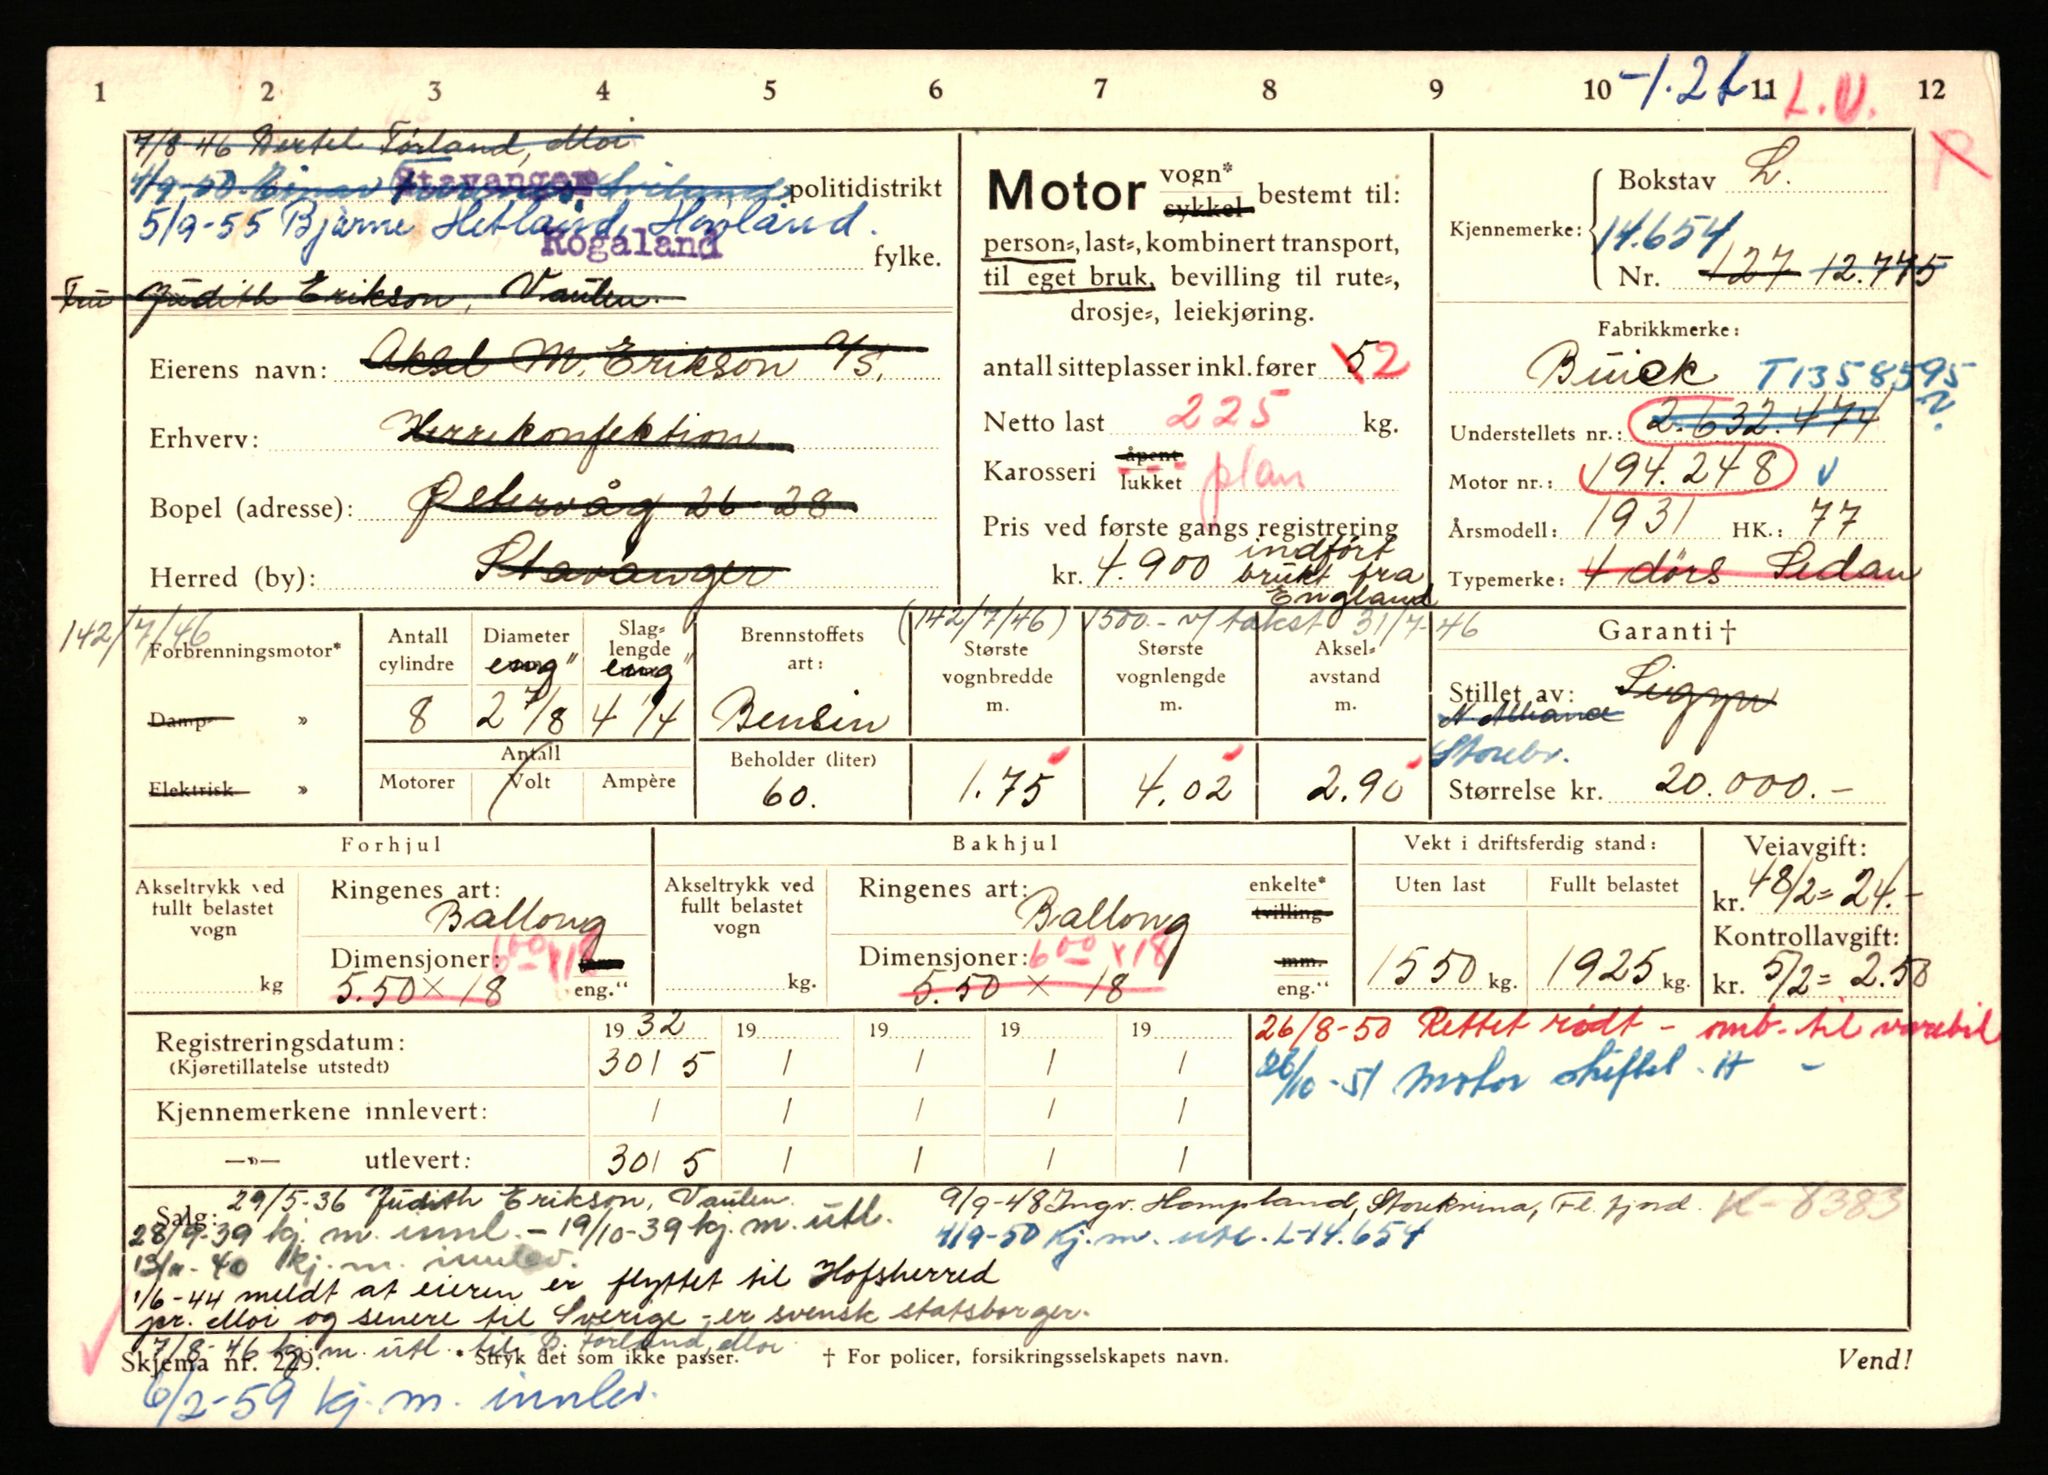 1 2 3 4 5 6 7 8 9 10 -1.2t. 11 L.V. 12
7/8-46 Bertel Førland, Moi
4/9-50 Einar
Stavanger politidistrikt
5/9-55 Bjarne Hetland, Hovland.
Rogaland fylke.
Fru Judith Erikson, Vaulen.
Eierens navn: Aksel M. Erikson A/S.
Erhverv: Herrekonfektion
Bopel (adresse): Østervåg 26-28
Herred (by): Stavanger
Motor vogn* sykkel bestemt til:
person-, last-, kombinert transport,
til eget bruk, bevilling til rute-,
drosje-, leiekjøring.
antall sitteplasser inkl. fører 5 2
Netto last 225 kg.
Karosseri åpent lukket plan
Pris ved første gangs registrering
kr. 4.900 indført brukt fra England
Kjennemerke: Bokstav L.
14.654
Nr. 127 12.775
Fabrikkmerke:
Buick T1358595
Understellets nr.: 2.632.474 ?
Motor nr.: 194.248 v
Årsmodell: 1931 HK.: 77
Typemerke: 4 dørs Sedan
142/7/46
(142/7/46) 1500.- v/takst 31/7-46
Forbrenningsmotor*
Damp- »
Elektrisk »
Antall cylindre 8
Diameter eng" 2 7/8
Slaglengde eng" 4 1/4
Antall
Motorer Volt Ampère
Brennstoffets art: Bensin
Beholder (liter) 60.
Største vognbredde m. 1.75
Største vognlengde m. 4.02
Akselavstand m. 2.90
Garanti †
Stillet av: Sigyn
N. Alliance
Storebr.
Størrelse kr. 20.000.-
Forhjul
Akseltrykk ved fullt belastet vogn kg
Ringenes art: Ballong
Dimensjoner: 600 x 18
5.50 x 18 eng."
Bakhjul
Akseltrykk ved fullt belastet vogn kg.
Ringenes art: Ballong enkelte* tvilling
Dimensjoner: 600 x 18 mm.
5.50 x 18 eng."
Vekt i driftsferdig stand:
Uten last Fullt belastet
1550 kg. 1925 kg.
Veiavgift:
kr. 48/2= 24.-
Kontrollavgift:
kr. 5/2= 2.50
Registreringsdatum: 19 32 19 19 19 19
(Kjøretillatelse utstedt) 30/5 / / / /
Kjennemerkene innlevert: / / / / /
—»— utlevert: 30/5 / / / /
26/8-50 Rettet rødt - omb. til varebil
26/10-51 Motor skiftet.
Salg: 29/5-36 Judith Erikson, Vaulen.
28/9-39 kj. m. innl. - 19/10-39 kj. m. utl.
13/11-40 kj. m. innlev.
1/6-44 meldt at eieren er flyttet til Hofsherred
pr. Moi og senere til Sverige, er svensk statsborger.
7/8-46 kj. m. utl. til B. Førland, Moi
9/9-48 Ingv. Hompland, Storekvina, Fl.fjord. K-8383
4/9-50 kj. m. utl. L-14.654
Skjema nr. 229. * Stryk det som ikke passer. † For policer, forsikringsselskapets navn. Vend!
6/2-59 kj. m. innlev.